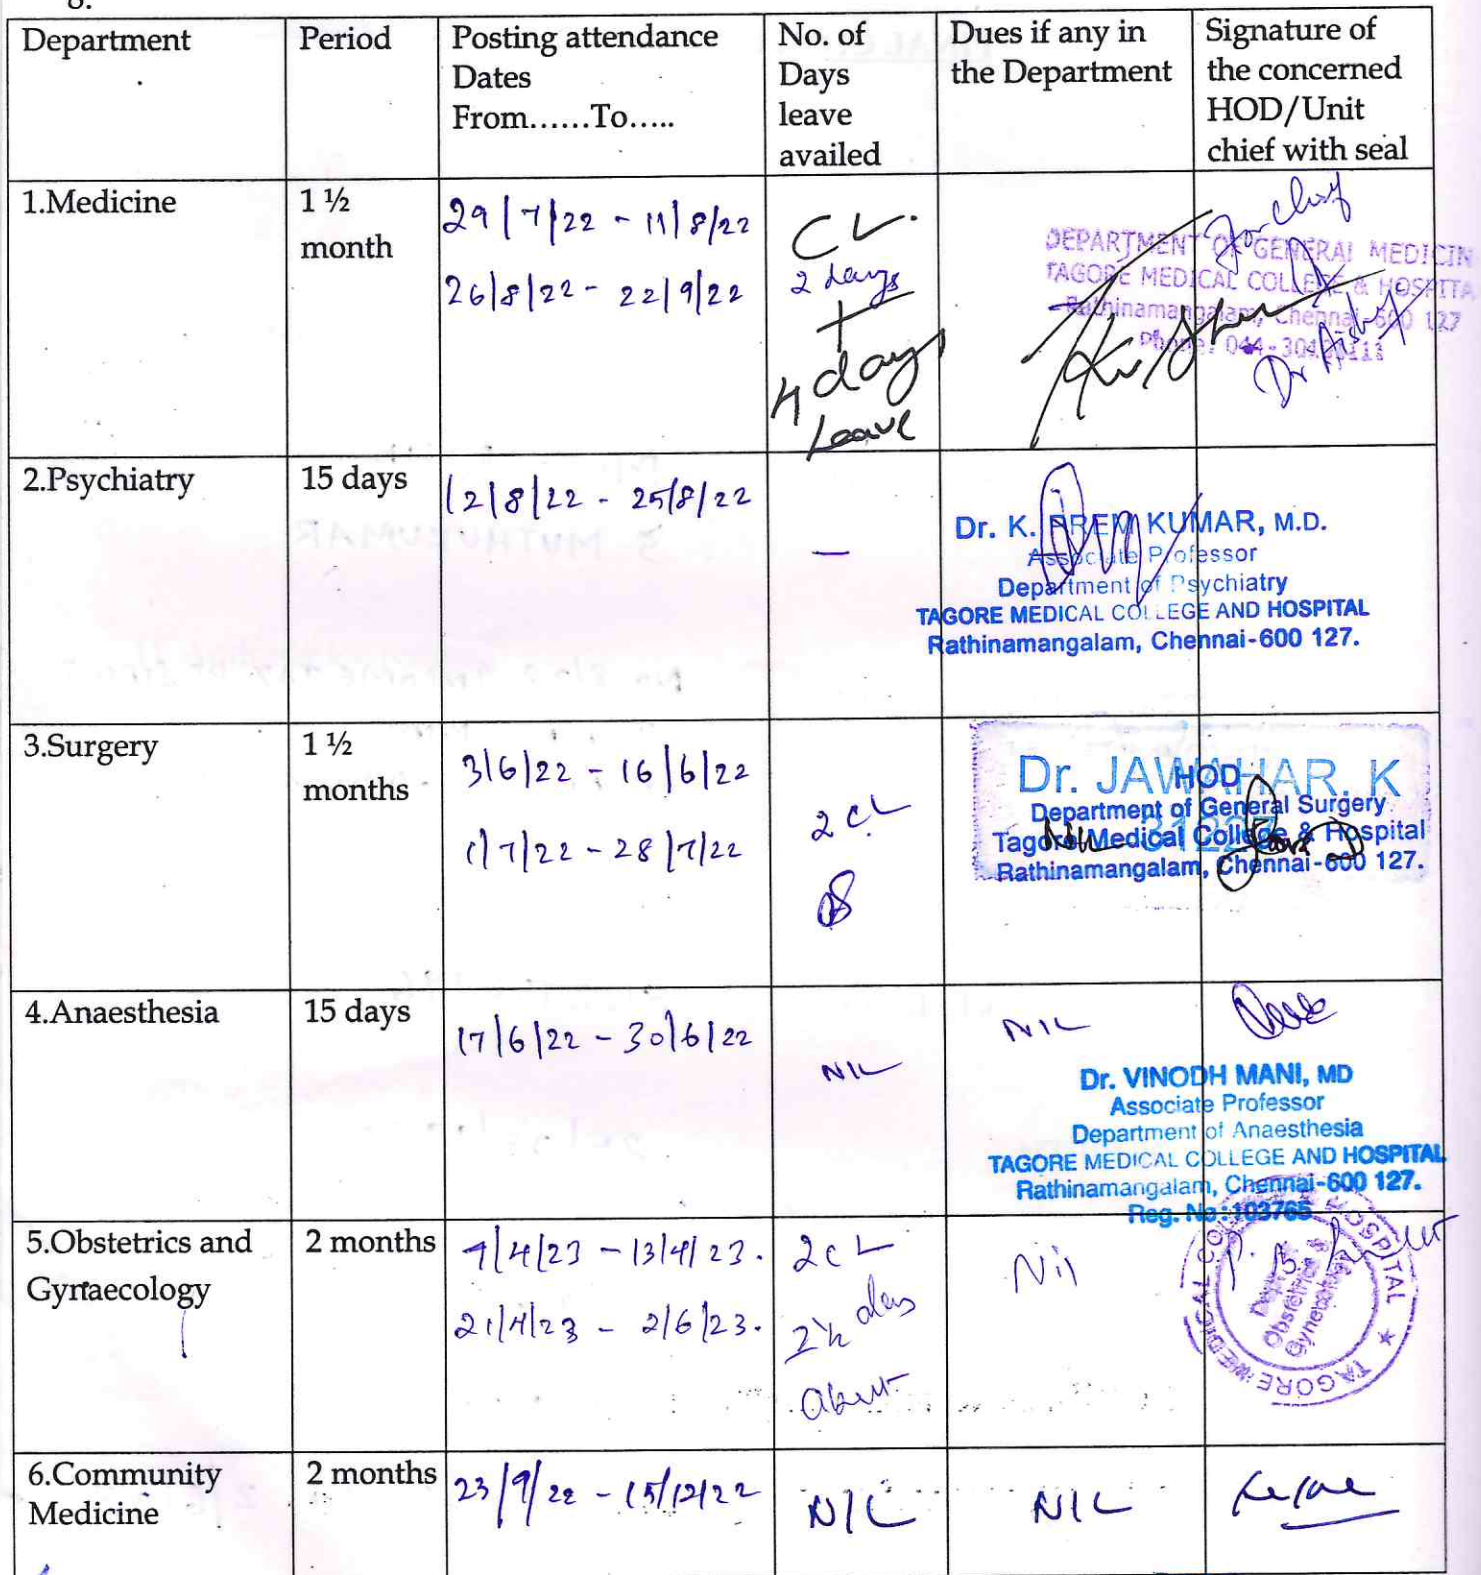 Department
Period
Posting attendance
Dates
From......To.....
No. of
Days
leave
availed
Dues if any in
the Department
Signature of
the concerned
HOD/Unit
chief with seal
1.Medicine
1 ½
month
29/7/22 - 11/8/22
26/8/22 - 22/9/22
CL.
2 days
+
4 days
Leave
for chief
DEPARTMENT OF GENERAL MEDICIN
TAGORE MEDICAL COLLEGE & HOSPITA
Rathinamangalam, Chennai-600 127
Phone: 044-
2.Psychiatry
15 days
12/8/22 - 25/8/22
—
Dr. K. PREM KUMAR, M.D.
Associate Professor
Department of Psychiatry
TAGORE MEDICAL COLLEGE AND HOSPITAL
Rathinamangalam, Chennai-600 127.
3.Surgery
1 ½
months
3/6/22 - 16/6/22
1/7/22 - 28/7/22
2 CL
Dr. JAWAHAR. K
HOD
Department of General Surgery
Tagore Medical College & Hospital
Rathinamangalam, Chennai-600 127.
Nil
4.Anaesthesia
15 days
17/6/22 - 30/6/22
NIL
NIL
Dr. VINODH MANI, MD
Associate Professor
Department of Anaesthesia
TAGORE MEDICAL COLLEGE AND HOSPITAL
Rathinamangalam, Chennai-600 127.
Reg. No:103765
5.Obstetrics and
Gynaecology
2 months
/4/23 - 13/4/23.
21/4/23 - 2/6/23.
2 CL
2½ days
absent
Nil
Dept. of
Obstetrics &
Gynecology
TAGORE MEDICAL COLLEGE HOSPITAL
6.Community
Medicine
2 months
23/9/22 - 15/12/22
NIL
NIL